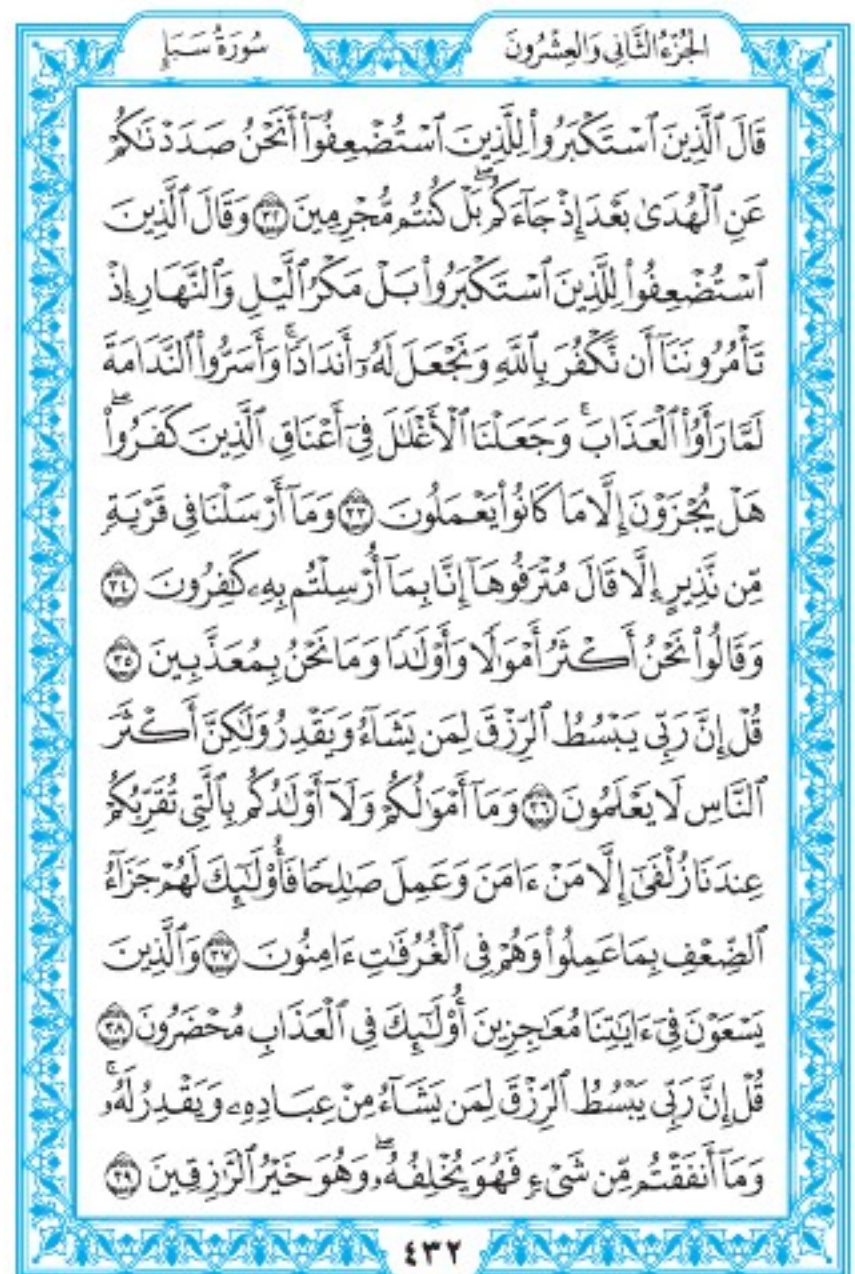 الجُزْءُ الثَّانِي وَالعِشْرُونَ سُورَةُ سَبَإٍ
قَالَ ٱلَّذِينَ ٱسۡتَكۡبَرُواْ لِلَّذِينَ ٱسۡتُضۡعِفُوٓاْ أَنَحۡنُ صَدَدۡنَٰكُمۡ
عَنِ ٱلۡهُدَىٰ بَعۡدَ إِذۡ جَآءَكُمۖ بَلۡ كُنتُم مُّجۡرِمِينَ ٣٢ وَقَالَ ٱلَّذِينَ
ٱسۡتُضۡعِفُواْ لِلَّذِينَ ٱسۡتَكۡبَرُواْ بَلۡ مَكۡرُ ٱلَّيۡلِ وَٱلنَّهَارِ إِذۡ
تَأۡمُرُونَنَآ أَن نَّكۡفُرَ بِٱللَّهِ وَنَجۡعَلَ لَهُۥٓ أَندَادٗاۚ وَأَسَرُّواْ ٱلنَّدَامَةَ
لَمَّا رَأَوُاْ ٱلۡعَذَابَۚ وَجَعَلۡنَا ٱلۡأَغۡلَٰلَ فِيٓ أَعۡنَاقِ ٱلَّذِينَ كَفَرُواْۖ
هَلۡ يُجۡزَوۡنَ إِلَّا مَا كَانُواْ يَعۡمَلُونَ ٣٣ وَمَآ أَرۡسَلۡنَا فِي قَرۡيَةٖ
مِّن نَّذِيرٍ إِلَّا قَالَ مُتۡرَفُوهَآ إِنَّا بِمَآ أُرۡسِلۡتُم بِهِۦ كَٰفِرُونَ ٣٤
وَقَالُواْ نَحۡنُ أَكۡثَرُ أَمۡوَٰلٗا وَأَوۡلَٰدٗا وَمَا نَحۡنُ بِمُعَذَّبِينَ ٣٥
قُلۡ إِنَّ رَبِّي يَبۡسُطُ ٱلرِّزۡقَ لِمَن يَشَآءُ وَيَقۡدِرُ وَلَٰكِنَّ أَكۡثَرَ
ٱلنَّاسِ لَا يَعۡلَمُونَ ٣٦ وَمَآ أَمۡوَٰلُكُمۡ وَلَآ أَوۡلَٰدُكُم بِٱلَّتِي تُقَرِّبُكُمۡ
عِندَنَا زُلۡفَىٰٓ إِلَّا مَنۡ ءَامَنَ وَعَمِلَ صَٰلِحٗا فَأُوْلَٰٓئِكَ لَهُمۡ جَزَآءُ
ٱلضِّعۡفِ بِمَا عَمِلُواْ وَهُمۡ فِي ٱلۡغُرُفَٰتِ ءَامِنُونَ ٣٧ وَٱلَّذِينَ
يَسۡعَوۡنَ فِيٓ ءَايَٰتِنَا مُعَٰجِزِينَ أُوْلَٰٓئِكَ فِي ٱلۡعَذَابِ مُحۡضَرُونَ ٣٨
قُلۡ إِنَّ رَبِّي يَبۡسُطُ ٱلرِّزۡقَ لِمَن يَشَآءُ مِنۡ عِبَادِهِۦ وَيَقۡدِرُ لَهُۥۚ
وَمَآ أَنفَقۡتُم مِّن شَيۡءٖ فَهُوَ يُخۡلِفُهُۥۖ وَهُوَ خَيۡرُ ٱلرَّٰزِقِينَ ٣٩
٤٣٢